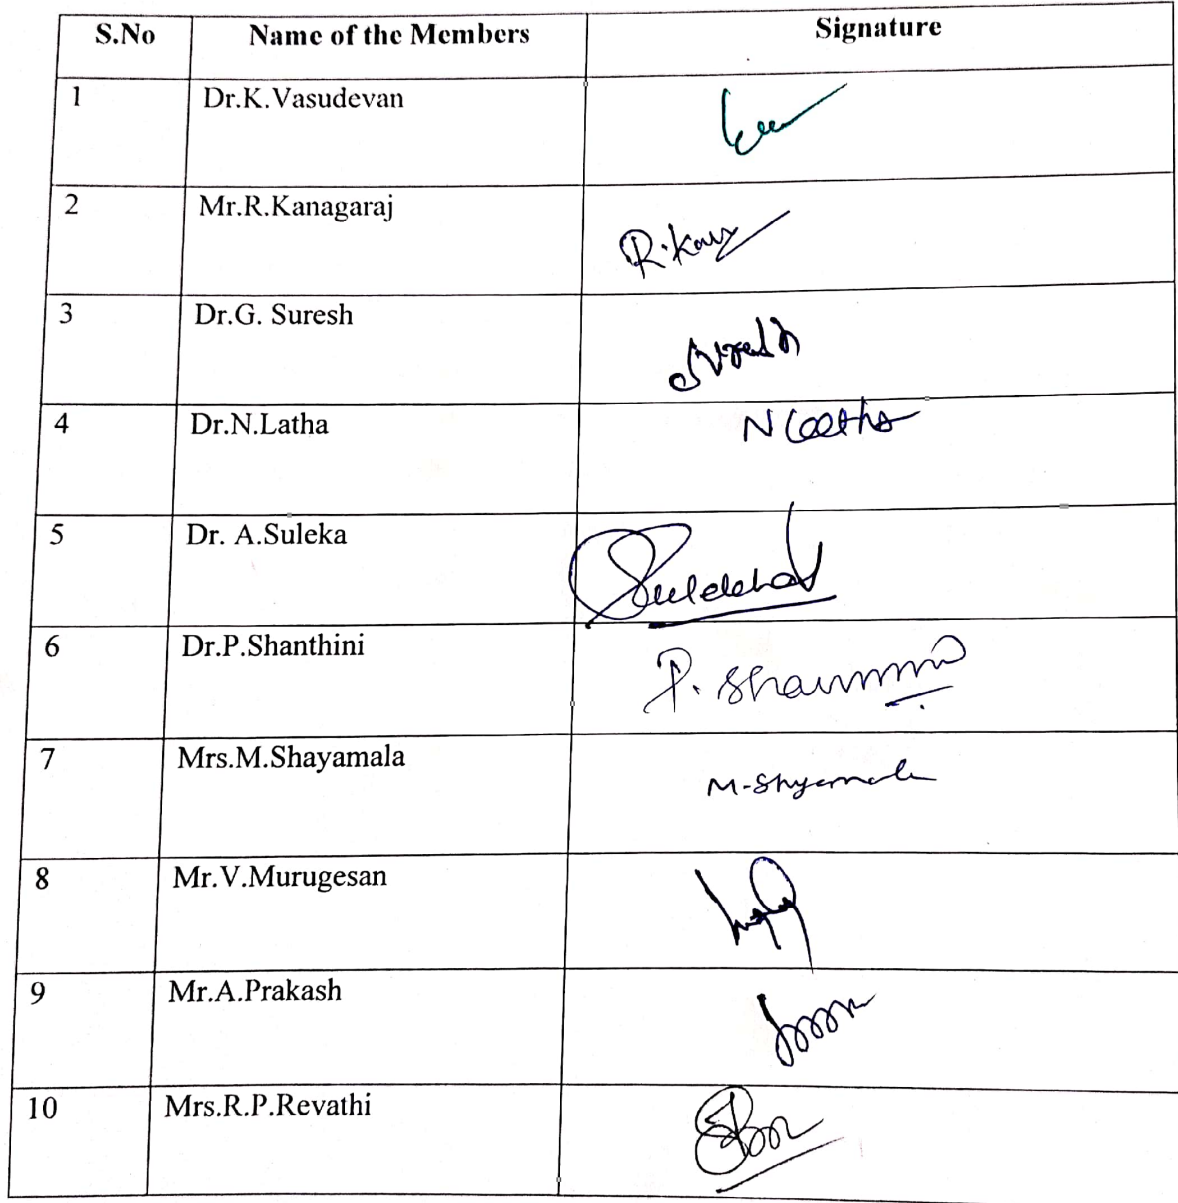 S.No Name of the Members Signature
1 Dr.K.Vasudevan
2 Mr.R.Kanagaraj
3 Dr.G. Suresh
4 Dr.N.Latha N Latha
5 Dr. A.Suleka
6 Dr.P.Shanthini
7 Mrs.M.Shayamala M-Shyamala
8 Mr.V.Murugesan
9 Mr.A.Prakash
10 Mrs.R.P.Revathi